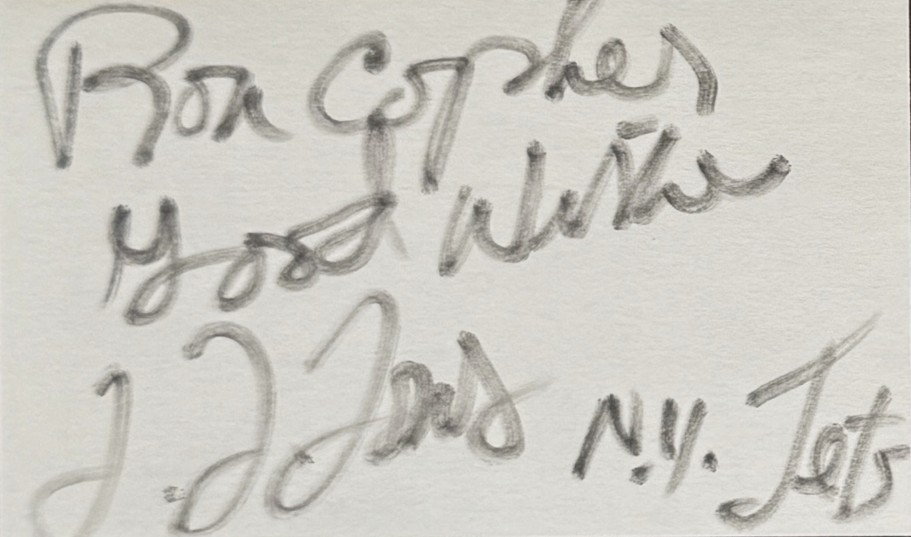 Ron Copher
Good Wishes
J. J. Jones N.Y. Jets